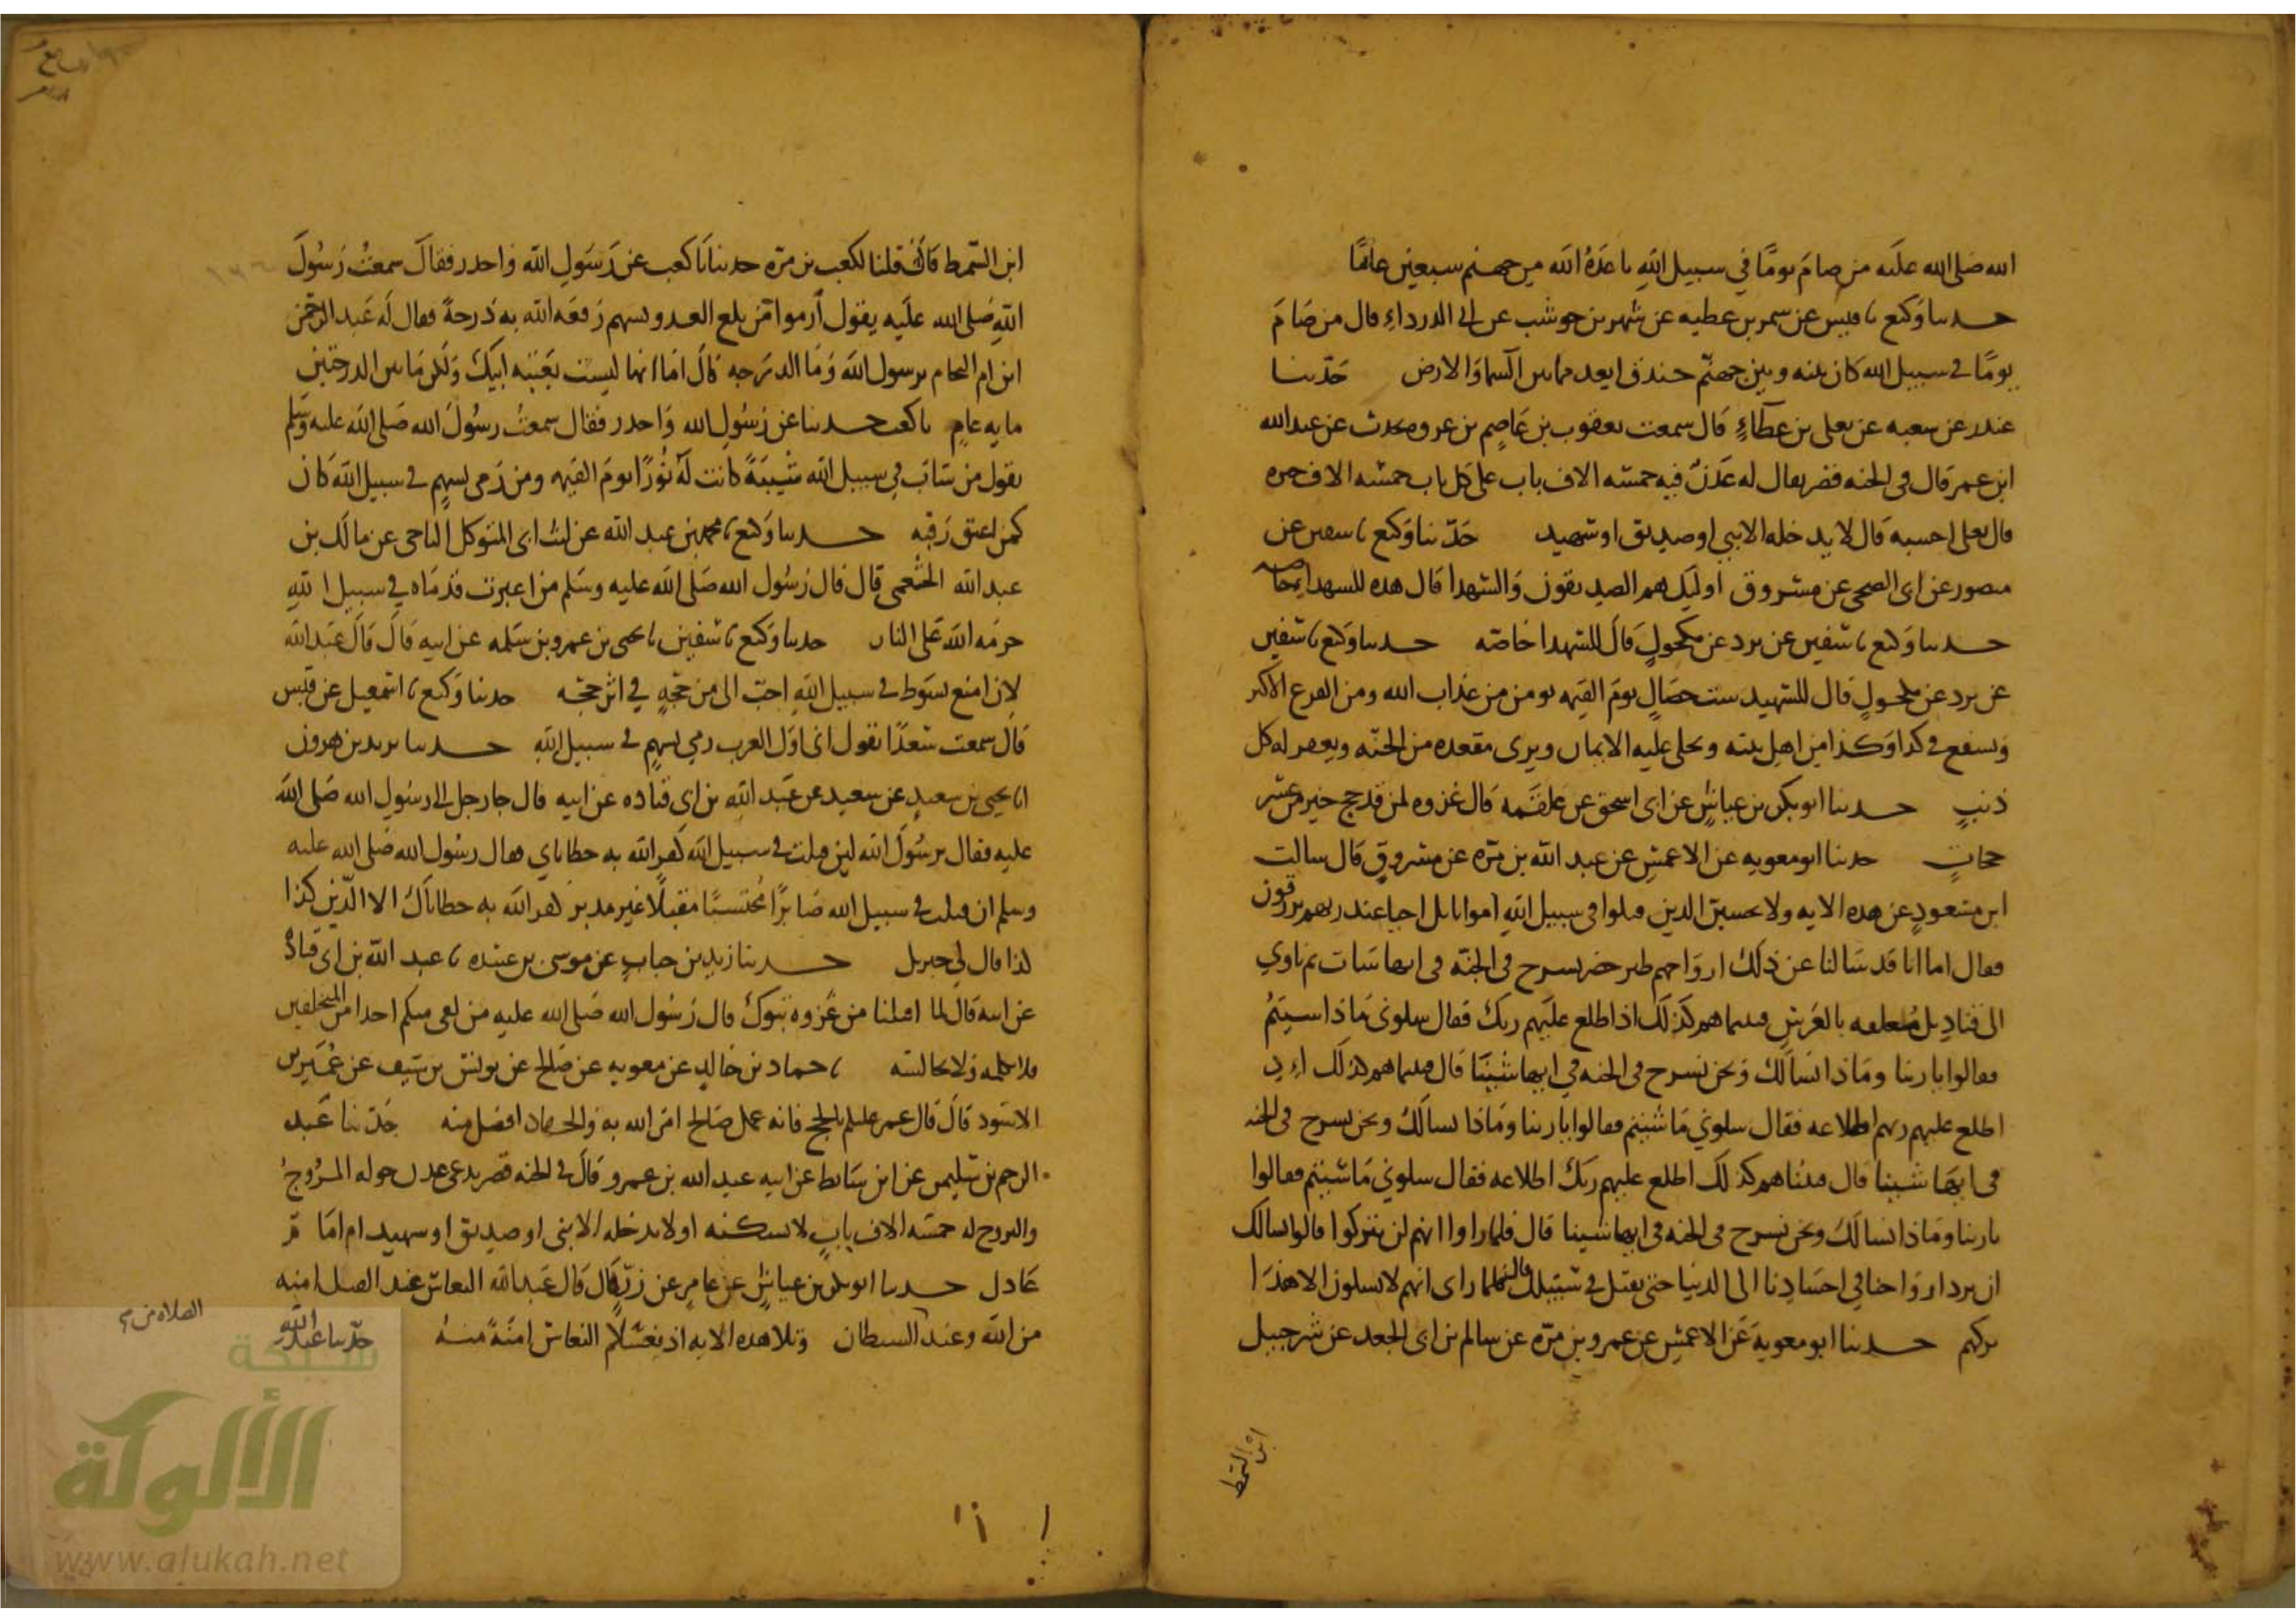 الله صلى الله عليه من صام يومًا في سبيل الله باعده الله من جهنم سبعين عامًا
حدثنا وكيع نا قيس عن شمر بن عطيه عن شهر بن حوشب عن ابي الدرداء قال من صام
يومًا في سبيل الله كان بينه وبين جهنم خندق ابعد مما بين السما والارض حدثنا
غندر عن شعبه عن يعلى بن عطاء قال سمعت يعقوب بن عاصم بن عروه يحدث عن عبد الله
ابن عمر قال في الجنه قصر يقال له عدن فيه خمسه الاف باب على كل باب خمسه الاف حبره
قال يعلى احسبه قال لا يدخله الا نبي او صديق او شهيد حدثنا وكيع نا سفين عن
منصور عن ابي الضحى عن مسروق اوليك هم الصديقون والشهدا قال هذه للشهدا خاصه
حدثنا وكيع نا سفين عن برد عن مكحول قال للشهدا خاصه حدثنا وكيع نا سفين
عن برد عن مكحول قال للشهيد ست خصال يوم القيمه يومن من عذاب الله ومن الفزع الاكبر
ويشفع في كذا وكذا من اهل بيته ويحلى عليه الايمان ويرى مقعده من الجنه ويغفر له كل
ذنبٍ حدثنا ابو بكر بن عياش عن ابي اسحق عن علقمه قال غزوه لمن قد حج خير من عشر
حجات حدثنا ابو معويه عن الاعمش عن عبد الله بن مره عن مسروق قال سالت
ابن مسعود عن هذه الايه ولا تحسبن الذين قتلوا في سبيل الله امواتا بل احيا عند ربهم يرزقون
فقال اما انا قد سالنا عن ذلك ارواحهم طير خضر تسرح في الجنه في ايها شات ثم تاوي
الى قناديل معلقه بالعرش فبينما هم كذلك اذ اطلع عليهم ربك فقال سلوني ماذا سيتم
فقالوا يا ربنا وماذا نسالك ونحن نسرح في الجنه في ايها شينا قال فبينما هم كذلك اذ
اطلع عليهم ربهم اطلاعه فقال سلوني ما شيتم فقالوا يا ربنا وماذا نسالك ونحن نسرح في الجنه
في ايها شينا قال فبينا هم كذلك اطلع عليهم ربك اطلاعه فقال سلوني ما شيتم فقالوا
يا ربنا وماذا نسالك ونحن نسرح في الجنه في ايها شينا قال فلما راوا انهم لن يتركوا قالوا نسالك
ان ترد ارواحنا في اجسادنا الى الدنيا حتى نقتل في سبيلك قال فلما راى انهم لا يسلون الا هذا
تركهم حدثنا ابو معوية عن الاعمش عن عمرو بن مره عن سالم بن ابي الجعد عن شرحبيل
ابن السمط
ابن السمط قال قلنا لكعب بن مره حدثنا يا كعب عن رسول الله واحذر فقال سمعت رسول
الله صلى الله عليه يقول ارموا من بلغ العدو بسهم رفعه الله به درجة فقال له عبد الرحمن
ابن ام النحام يرسول الله وما الدرجه قال اما انها ليست بعتبه ابيك ولكن ما بين الدرجتين
مايه عام يا كعب حدثنا عن رسول الله واحذر فقال سمعت رسول الله صلى الله عليه وسلم
يقول من شاب في سبيل الله شيبة كانت له نورًا يوم القيمه ومن رمى بسهم في سبيل الله كان
كمن اعتق رقبه حدثنا وكيع نا محمد بن عبد الله عن ليث ابي المتوكل الناجي عن مالك بن
عبد الله الخثعمي قال قال رسول الله صلى الله عليه وسلم من اغبرت قدماه في سبيل الله
حرمه الله على النار حدثنا وكيع نا سفين نا يحيى بن عمرو بن سلمه عن ابيه قال قال عبد الله
لان امتع بسوط في سبيل الله احب الي من حجه في اثر حجه حدثنا وكيع نا اسمعيل عن قيس
قال سمعت سعدًا يقول اني اول العرب رمى بسهم في سبيل الله حدثنا يزيد بن هرون
انا يحيى بن سعيد عن سعيد عن عبد الله بن ابي قتاده عن ابيه قال جا رجل الى رسول الله صلى الله
عليه فقال يرسول الله لين قتلت في سبيل الله كفر الله به خطاياي فقال رسول الله صلى الله عليه
وسلم ان قتلت في سبيل الله صابرًا محتسبًا مقبلًا غير مدبر كفر الله به خطاياك الا الدين كذا
لذا قال لي جبريل حدثنا زيد بن حباب عن موسى بن عبيده نا عبد الله بن ابي قتادة
عن ابيه قال لما اقبلنا من غزوه تبوك قال رسول الله صلى الله عليه من لقي منكم احدا من المتخلفين
فلا يكلمه ولا يجالسه نا حماد بن خالد عن معويه عن صالح عن يونس بن سيف عن عمير بن
الاسود قال قال عمر عليكم بالحج فانه عمل صالح امر الله به والجهاد افضل منه حدثنا عبد
الرحيم بن سليمن عن ابن سابط عن ابيه عبد الله بن عمرو قال في الجنه قصر يدعى عدن حوله المروج
والبروج له خمسه الاف باب لا يسكنه او لا يدخله الا نبي او صديق او شهيد او امام
عادل حدثنا ابو بكر بن عياش عن عاصم عن زر قال قال عبد الله النعاس عند القتال امنه
من الله وعند السيطان وتلا هذه الايه اذ يغشاكم النعاس امنة منه حدثنا عبد الله
الصلاه من
شبكة
الألوكة
www.alukah.net